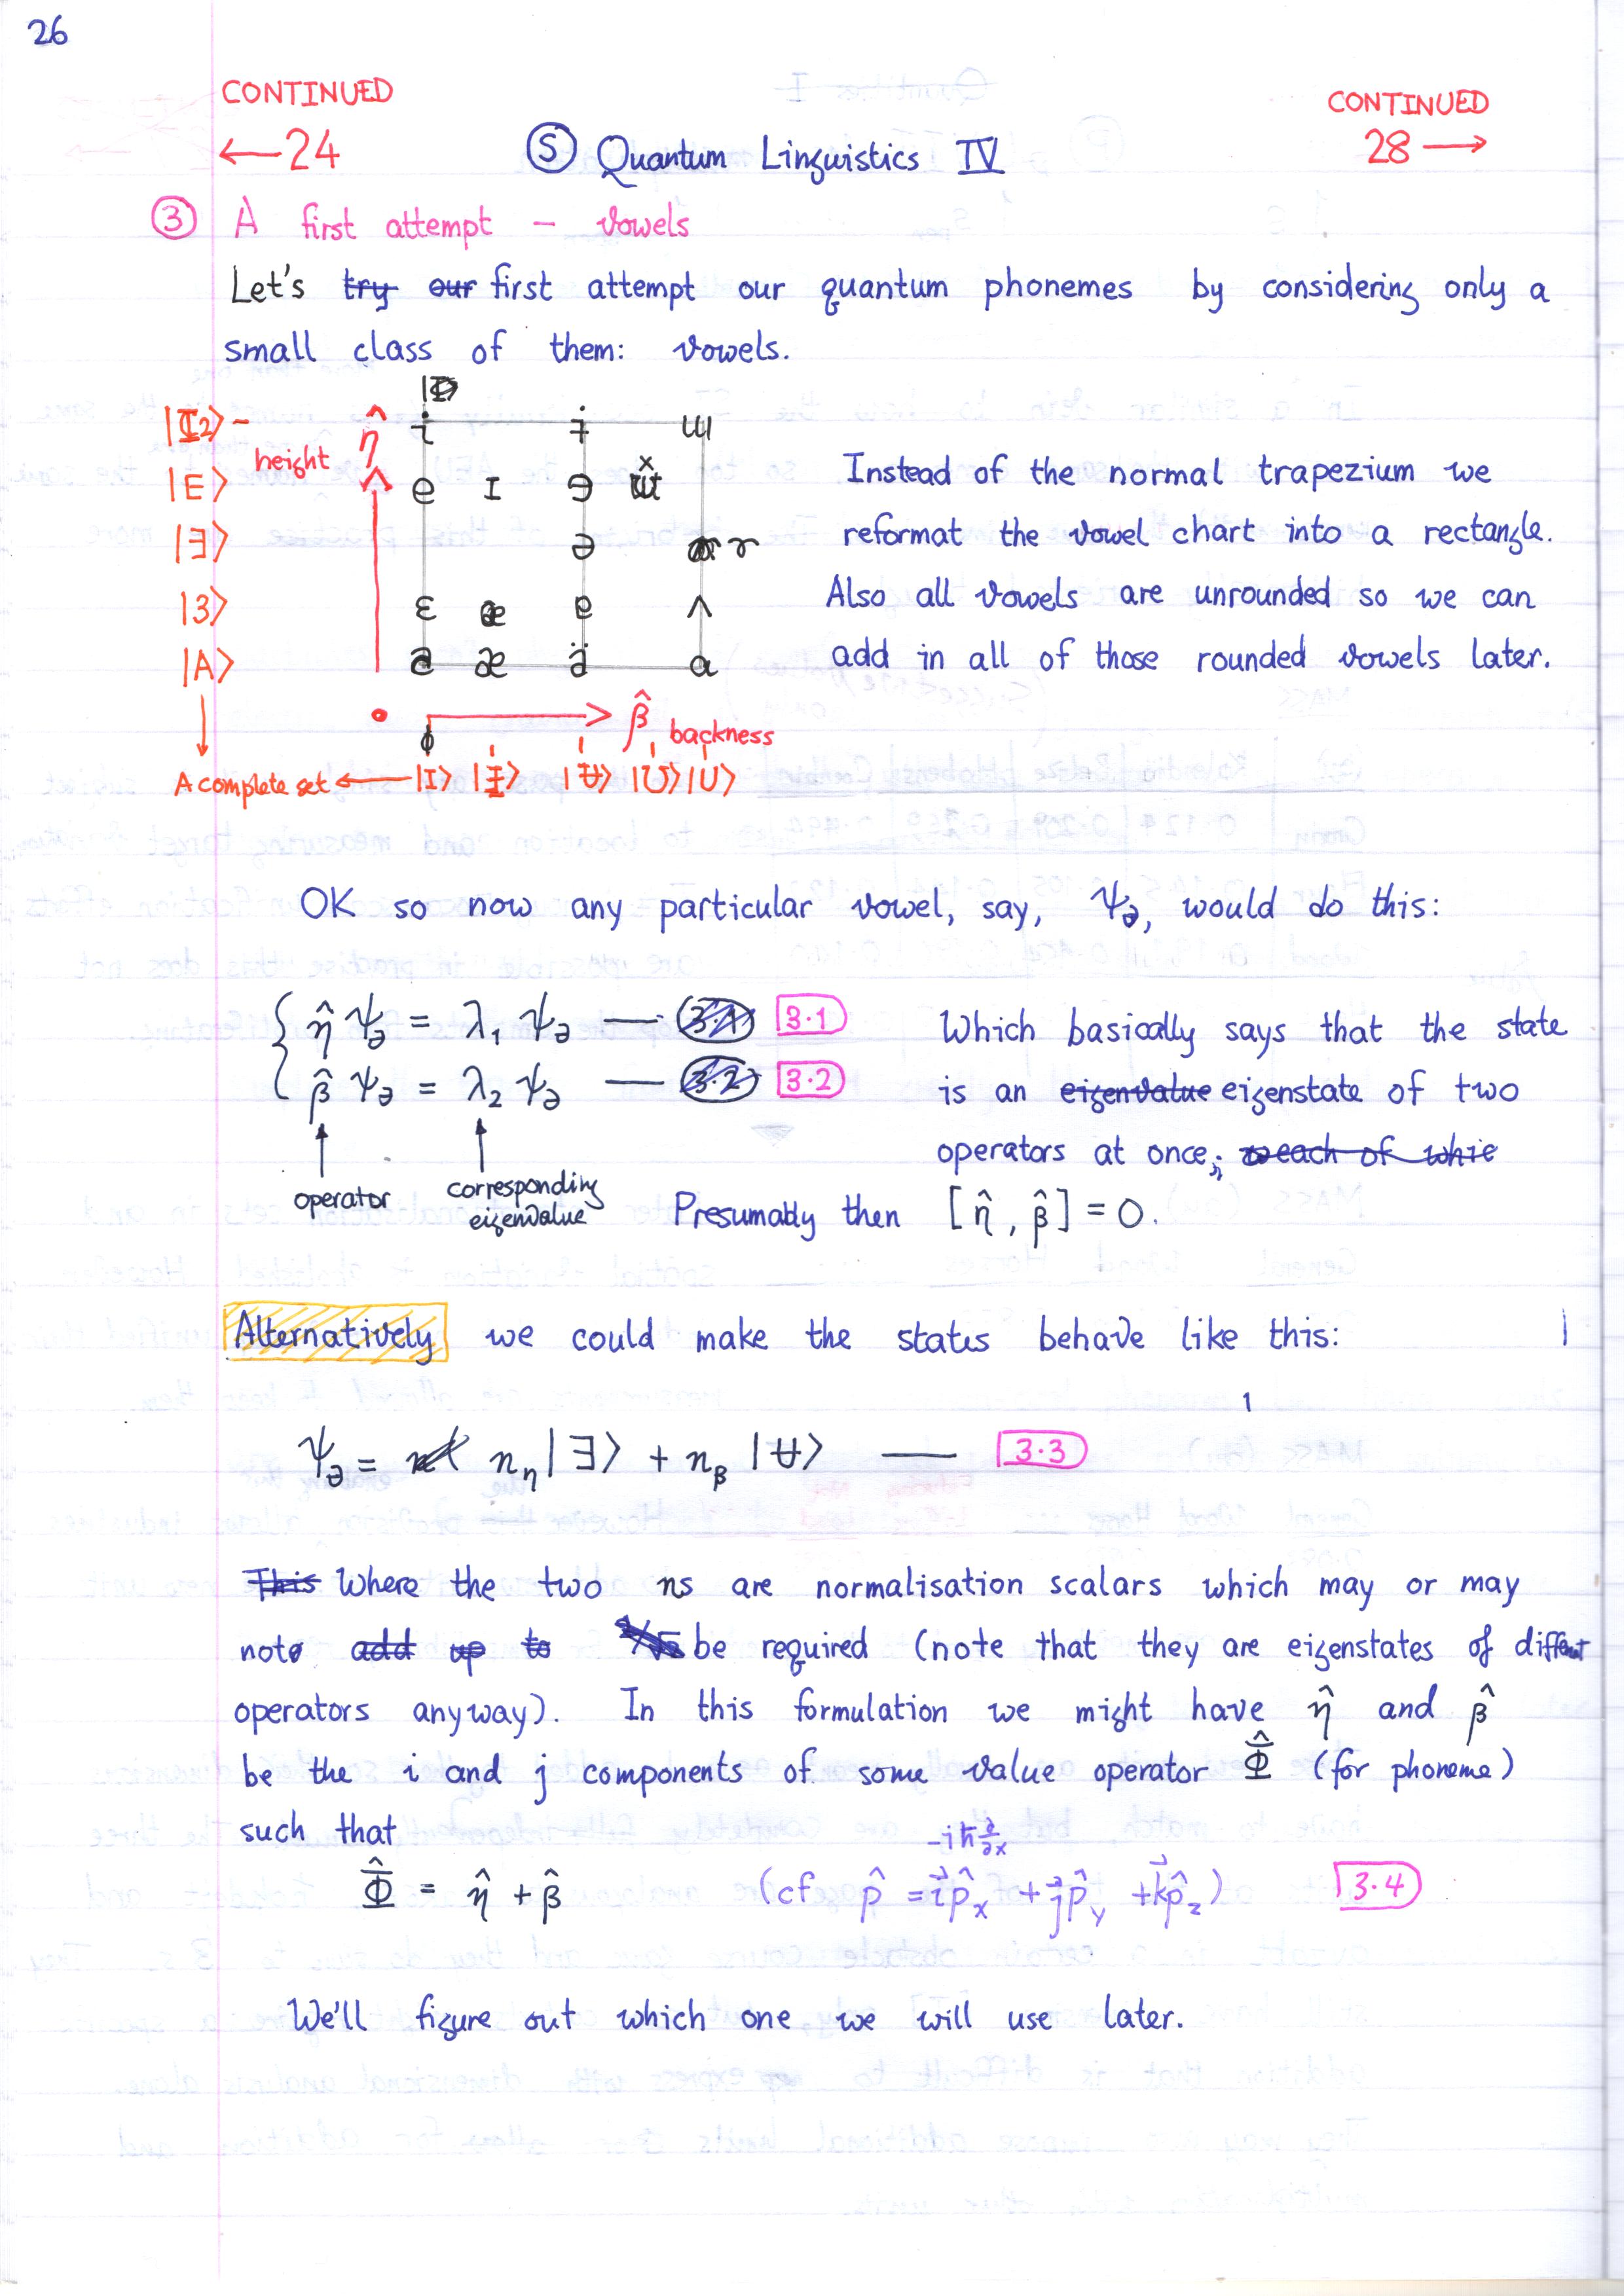 26
CONTINUED
←24
Ⓢ Quantum Linguistics IV
CONTINUED
28→
③ A first attempt – vowels
Let's try our first attempt our quantum phonemes by considering only a
small class of them: vowels.
|I2⟩ – height η̂ i ɨ ɯ
|E⟩ e ɪ ɘ ɯ̽
|Ǝ⟩ ə ɤ
|3⟩ ɛ æ ɐ ʌ
|A⟩ a æ ä ɑ
Instead of the normal trapezium we
reformat the vowel chart into a rectangle.
Also all vowels are unrounded so we can
add in all of those rounded vowels later.
β̂ backness
A complete set ← |I⟩ |Ɨ⟩ |Ʉ⟩ |Ʊ⟩ |U⟩
OK so now any particular vowel, say, ψə, would do this:
η̂ ψə = λ₁ ψə — 3.1
β̂ ψə = λ₂ ψə — 3.2
operator
corresponding
eigenvalue
Which basically says that the state
is an eigenvalue eigenstate of two
operators at once; each of whic
Presumably then [η̂, β̂] = 0.
Alternatively we could make the states behave like this:
ψə = nη |Ǝ⟩ + nβ |Ʉ⟩ — 3.3
This Where the two ns are normalisation scalars which may or may
note add up to be required (note that they are eigenstates of different
operators anyway). In this formulation we might have η̂ and β̂
be the i and j components of some value operator Φ̂ (for phoneme)
such that
-iħ ∂/∂x
Φ̂ = η̂ + β̂ (cf p̂ = i⃗p̂x + j⃗p̂y + k⃗p̂z) 3.4
We'll figure out which one we will use later.